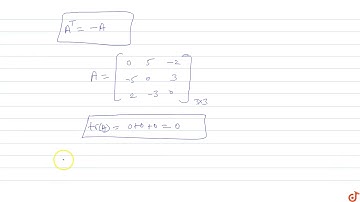 A^T = -A
A = [ 0 5 -2
-5 0 3
2 -3 0 ]3x3
tr(A) = 0+0+0 = 0